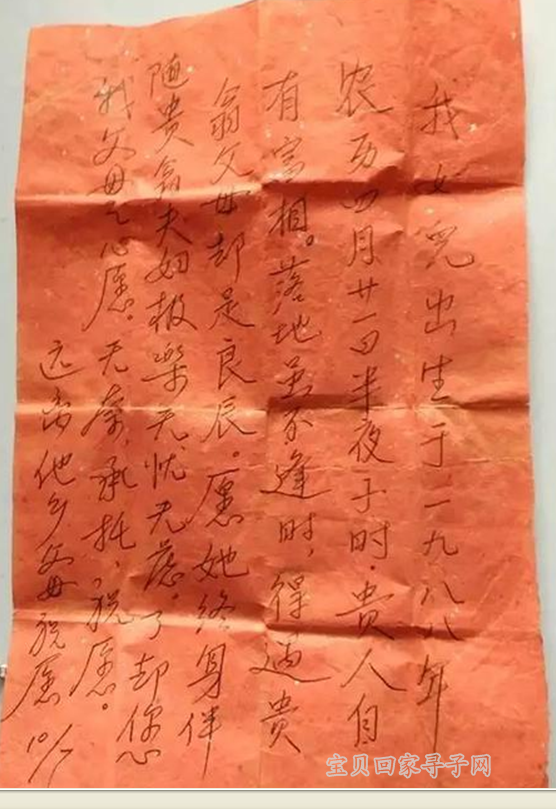 我女儿出生于一九八八年
农历四月廿一日半夜子时.贵人自
有富相。落地虽不逢时,得遇贵
翁父母却是良辰。愿她终身伴
随贵翁夫妇极乐无忧无虑。了却您
我父母之心愿。无奈,承托,祝愿。
远离他乡父母祝愿 10/7
宝贝回家寻子网